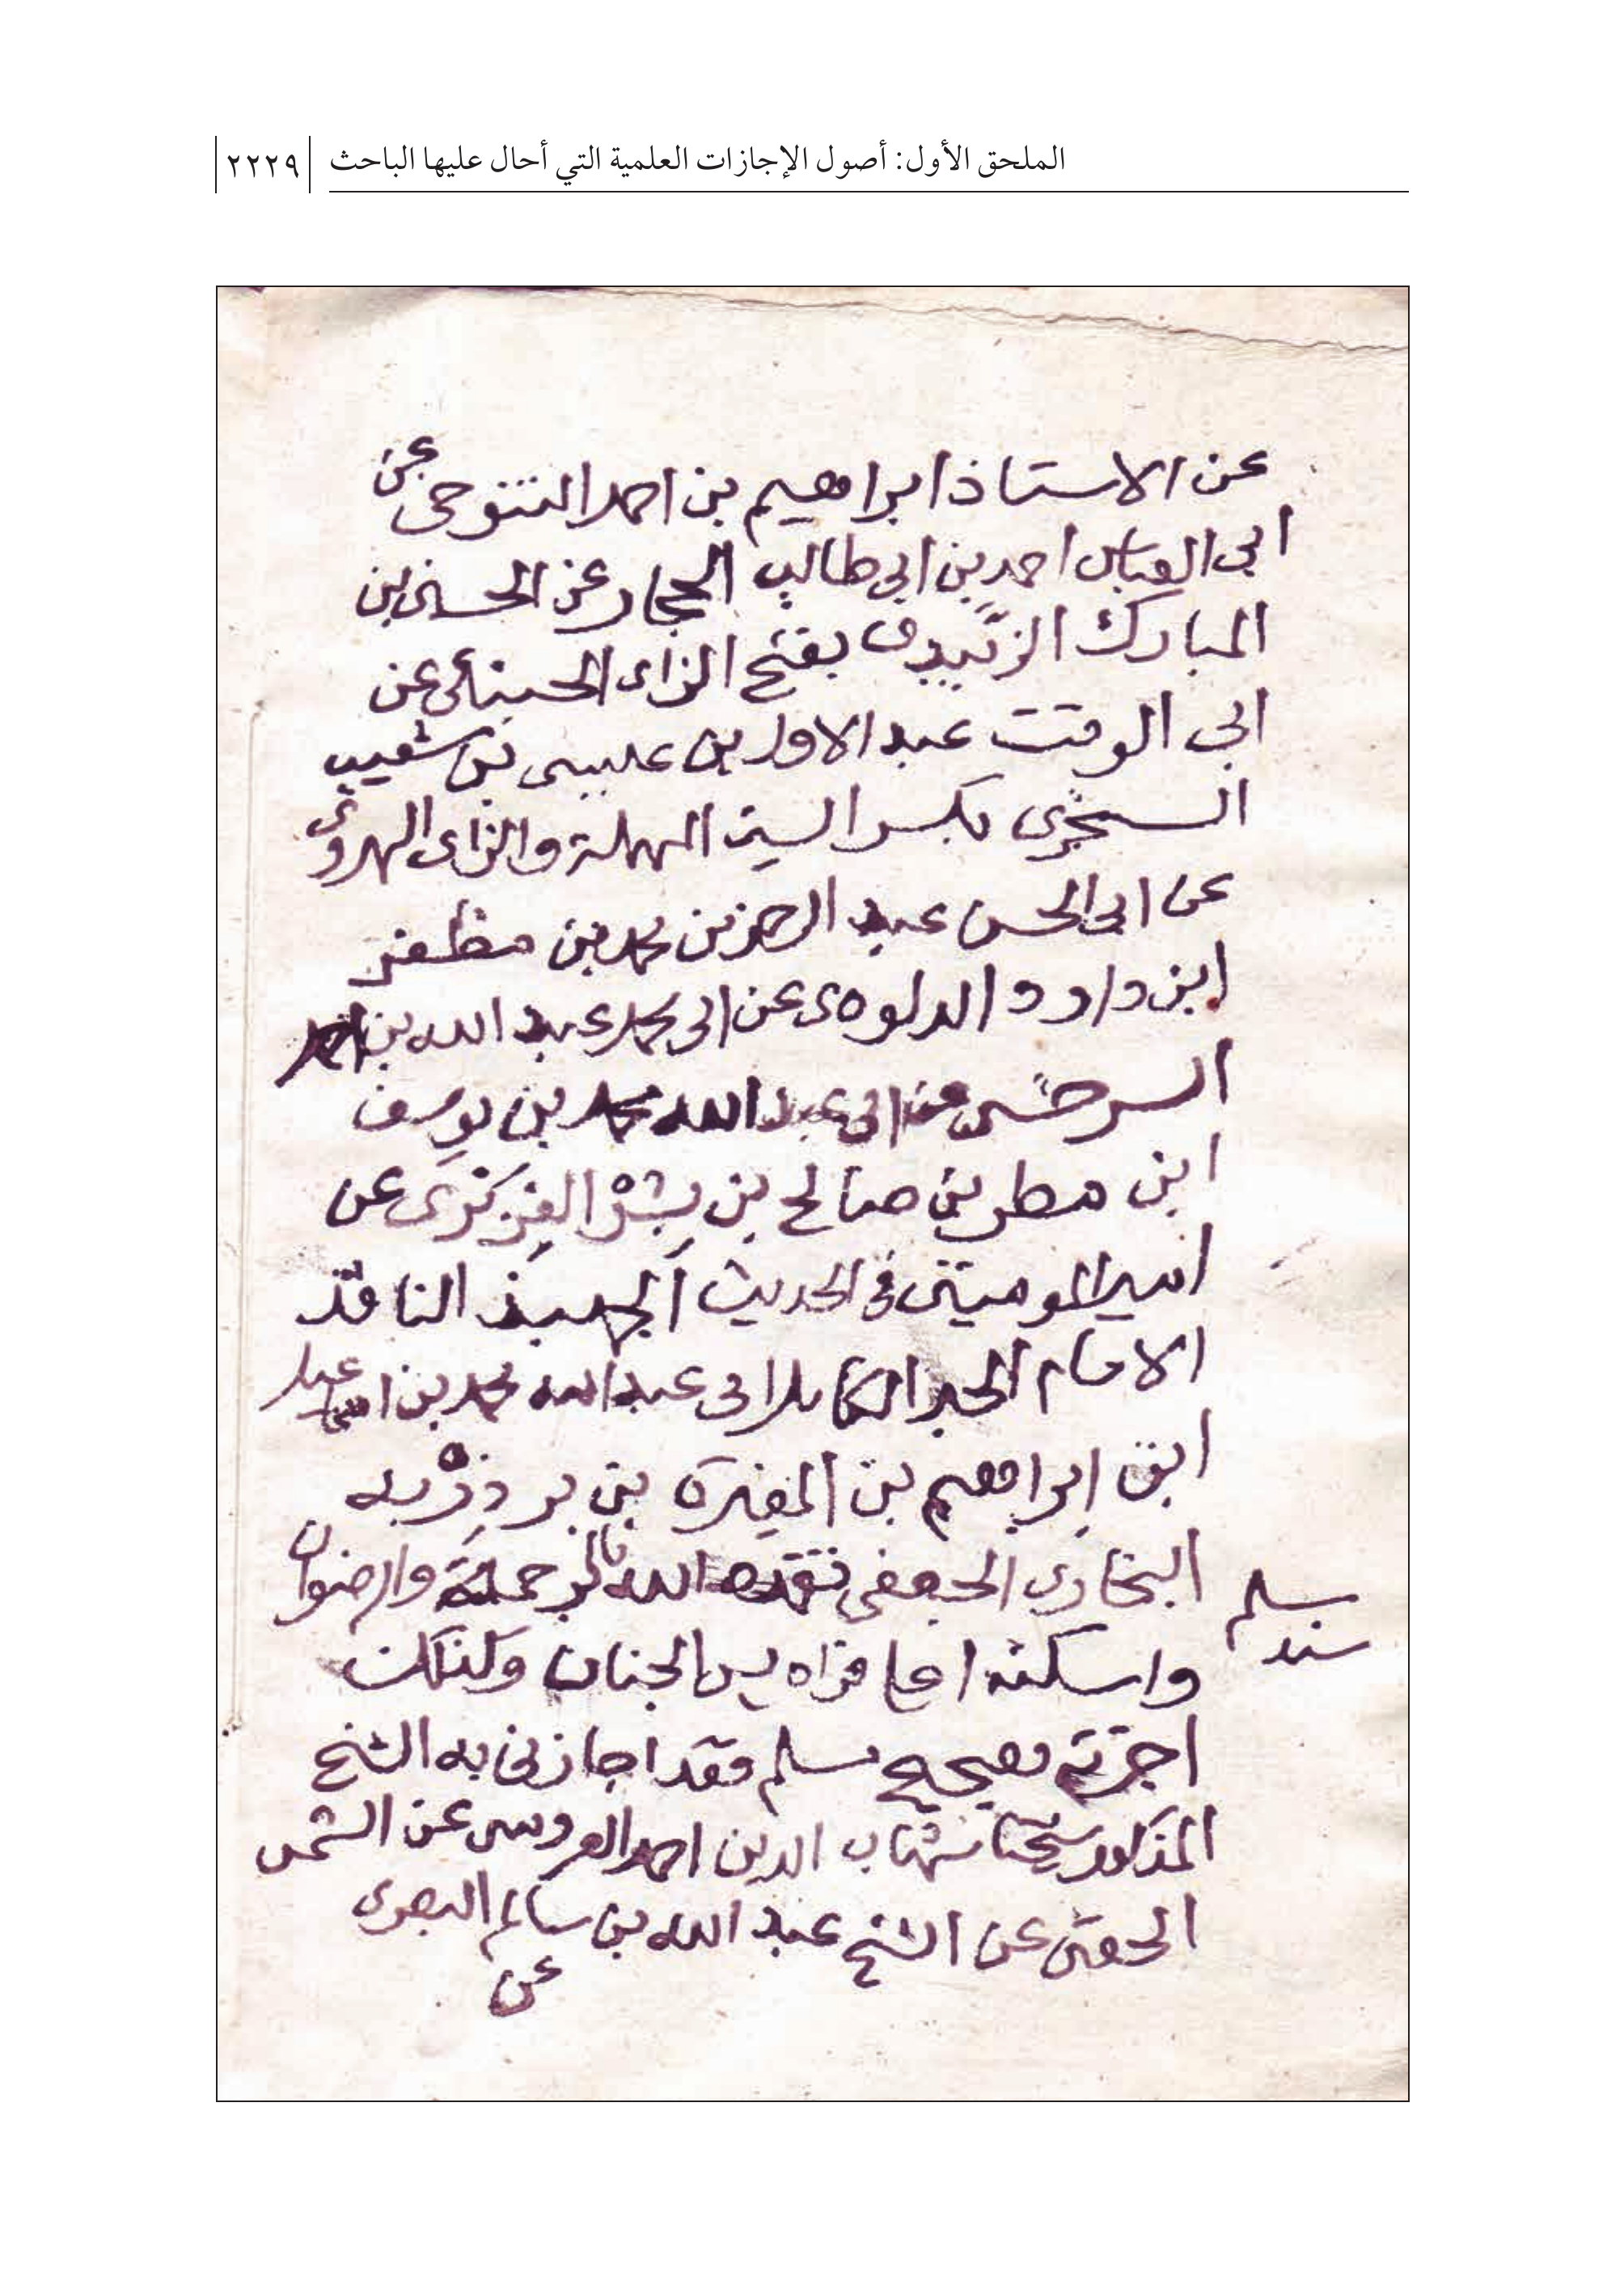 الملحق الأول: أصول الإجازات العلمية التي أحال عليها الباحث
٢٢٢٩
عن الاستاذ ابراهيم بن احمد التنوخى عن
ابى العباس احمد بن ابى طالب الحجار عن الحسين بن
المبارك الزَّبيدى بفتح الزاى الحنبلى عن
ابى الوقت عبد الاول بن عيسى بن شعيب
السجزي بكسر السين المهملة والزاى الهروى
عن ابى الحسن عبد الرحمن بن محمد بن مظفر
ابن داود الداودى عن ابى محمد عبد الله بن احمد
السرخسى عن ابى عبد الله محمد بن يوسف
ابن مطر بن صالح بن بِشْر الفِرَبْرى عن
امير المومنين فى الحديث الجهبذ الناقد
الامام الحبر الكامل ابى عبد الله محمد بن اسماعيل
ابن ابراهيم بن المغيرة بن بردِزْبه
البخاري الجعفى تغمده الله بالرحمة والرضوان
واسكنه اعلا فراديس الجنان وكذلك
اجزته بصحيح مسلم فقد اجازنى به الشيخ
المذكور شيخنا شهاب الدين احمد العروسى عن الشمس
الحفنى عن الشيخ عبد الله بن سالم البصرى
عن
سند
مسلم